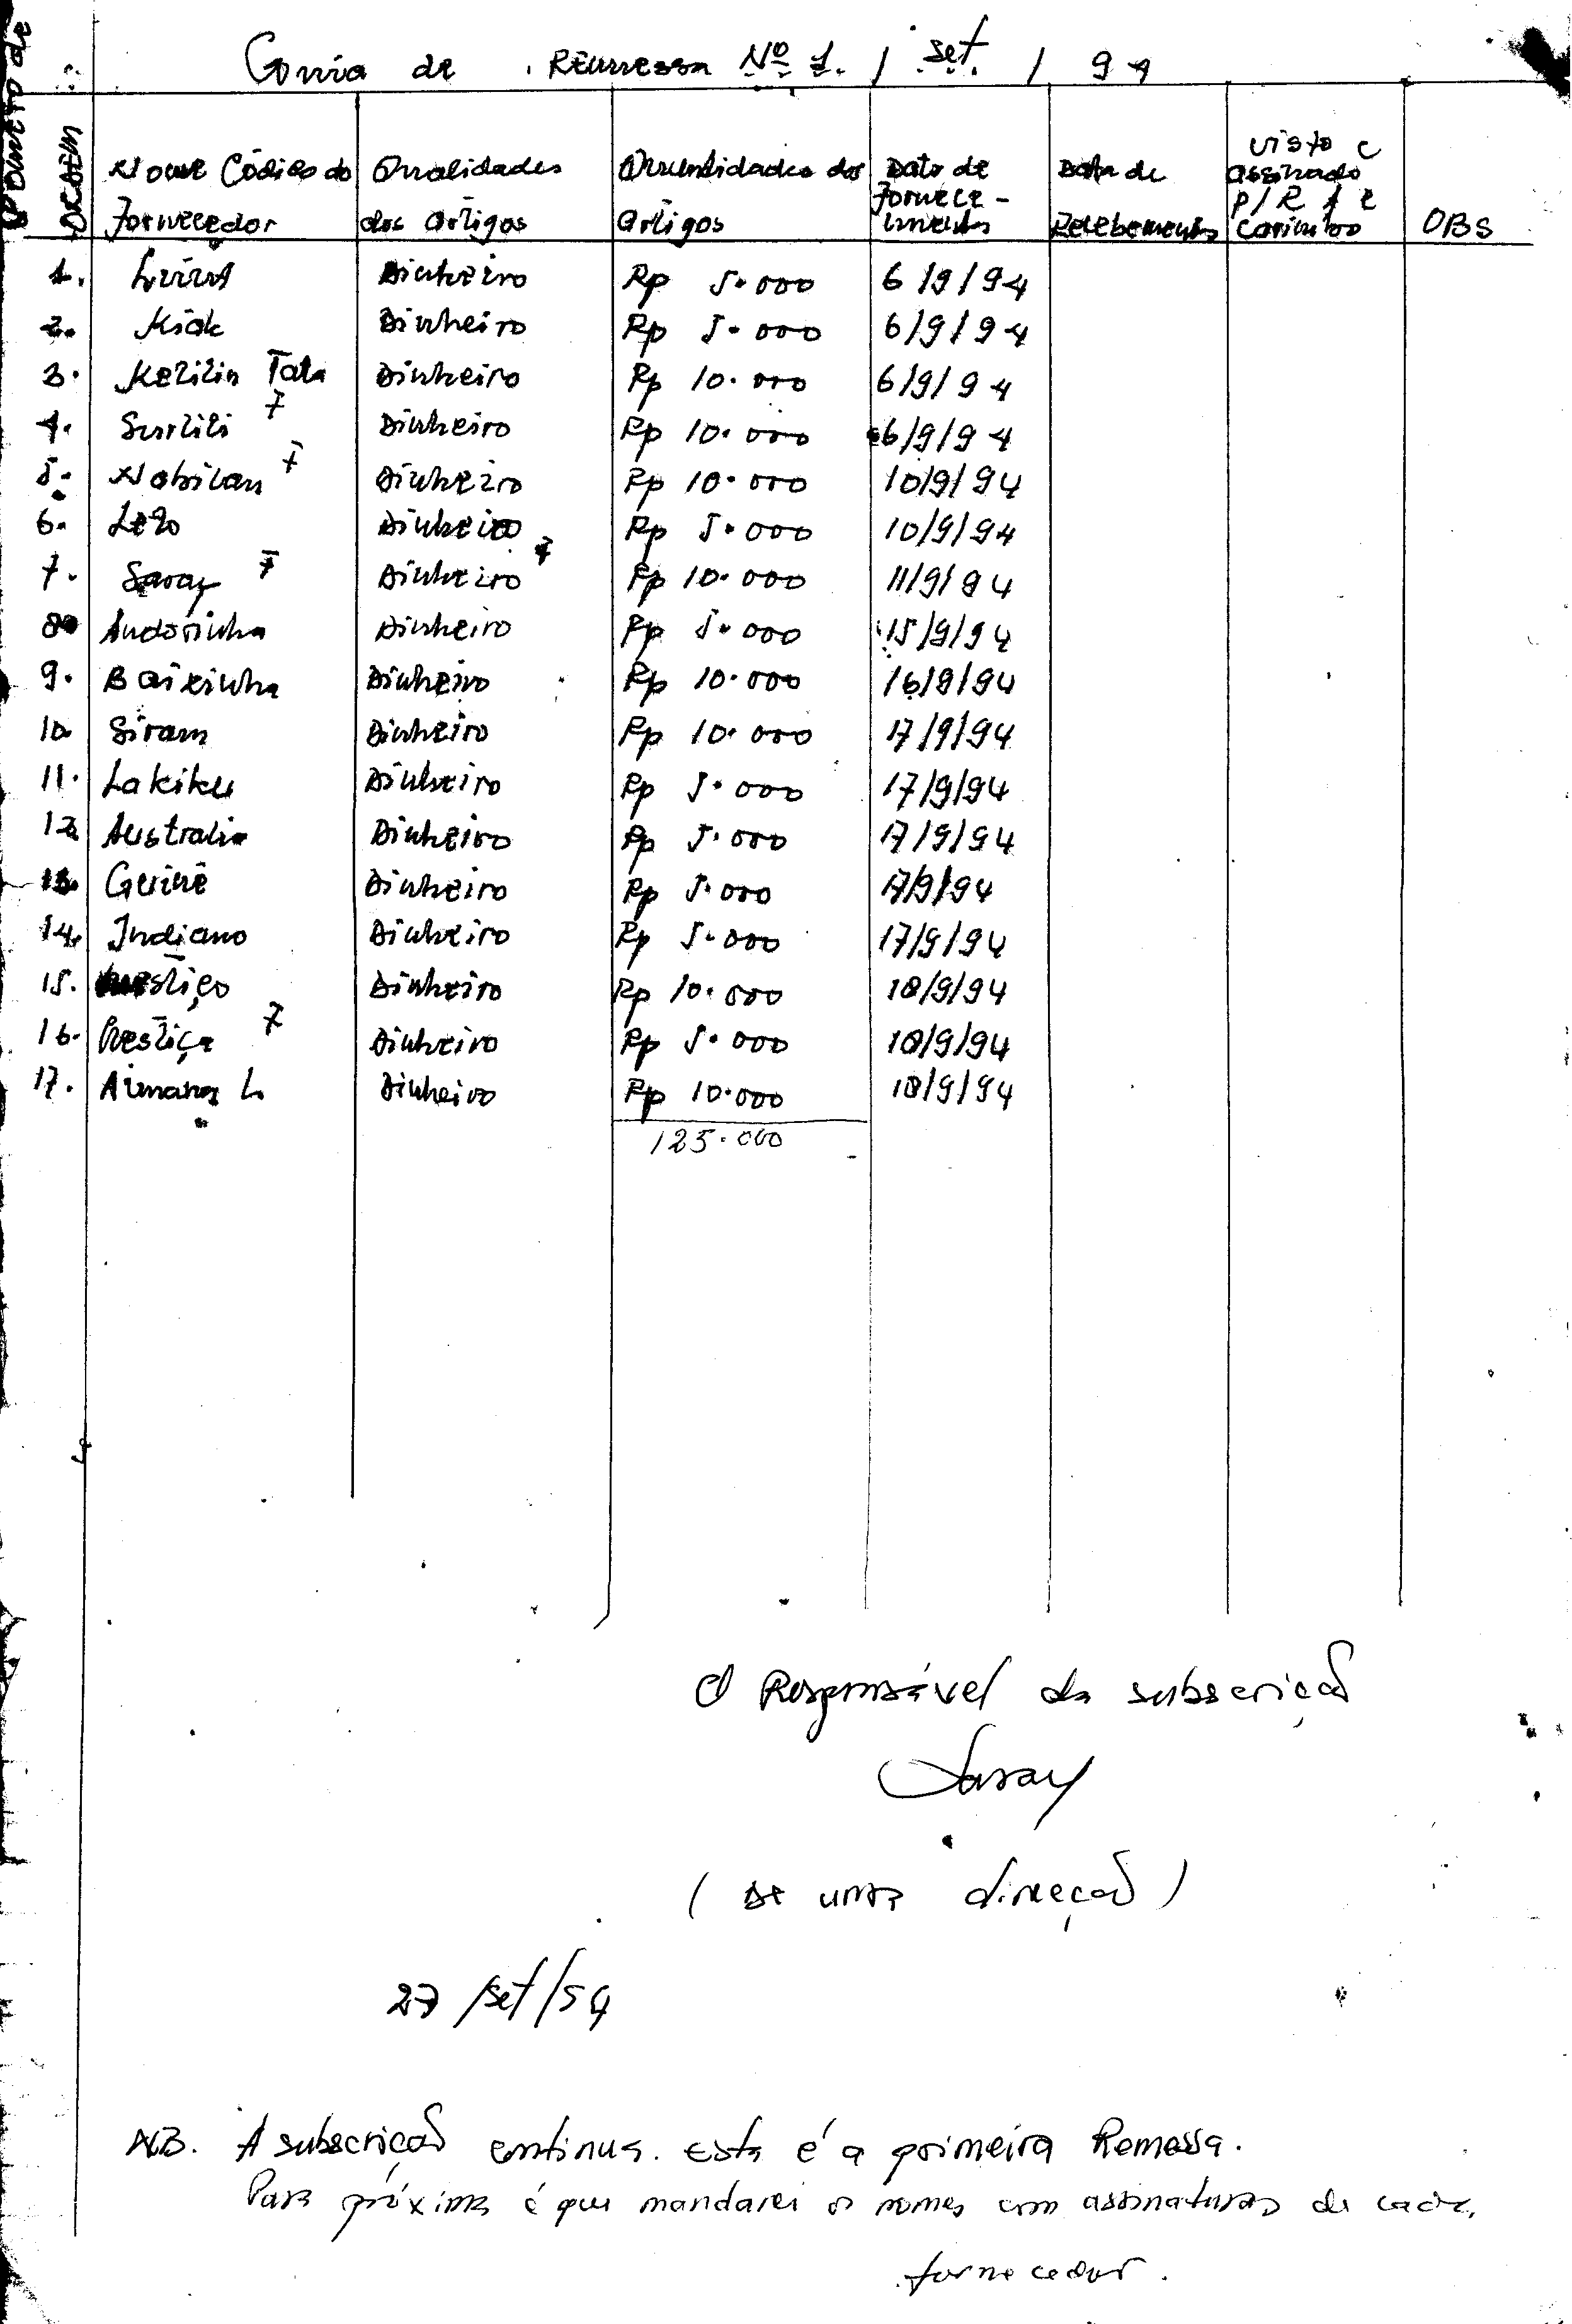 Guia de Remessa Nº 1. / set. / 94
Número de ordem
Nome Código do Fornecedor | Qualidades dos artigos | Quantidades dos artigos | Data de fornecimento | Data de Recebemento | visto e assinado p/ R e carimbo | OBS
1. | Dinheiro | Rp 5.000 | 6/9/94
2. Kiak | Dinheiro | Rp 5.000 | 6/9/94
3. Kelilin Tala | Dinheiro | Rp 10.000 | 6/9/94
4. Surlili | Dinheiro | Rp 10.000 | 6/9/94
5. Nabilan | Dinheiro | Rp 10.000 | 10/9/94
6. Leão | Dinheiro | Rp 5.000 | 10/9/94
7. Saray | Dinheiro | Rp 10.000 | 11/9/94
8. Andorinha | Dinheiro | Rp 5.000 | 15/9/94
9. Baixinha | Dinheiro | Rp 10.000 | 16/9/94
10. Siram | Dinheiro | Rp 10.000 | 17/9/94
11. Lakiku | Dinheiro | Rp 5.000 | 17/9/94
12. Australia | Dinheiro | Rp 5.000 | 17/9/94
13. | Dinheiro | Rp 5.000 | 17/9/94
14. Indiano | Dinheiro | Rp 5.000 | 17/9/94
15. Mestiço | Dinheiro | Rp 10.000 | 18/9/94
16. Mestiça | Dinheiro | Rp 5.000 | 18/9/94
17. L. | Dinheiro | Rp 10.000 | 18/9/94
125.000
O Responsável da subscrição
Saray
( de uma direção )
27/set/94
NB. A subscrição continua. Esta é a primeira Remessa.
Para próxima é que mandarei os nomes com assinaturas de cada
fornecedor.